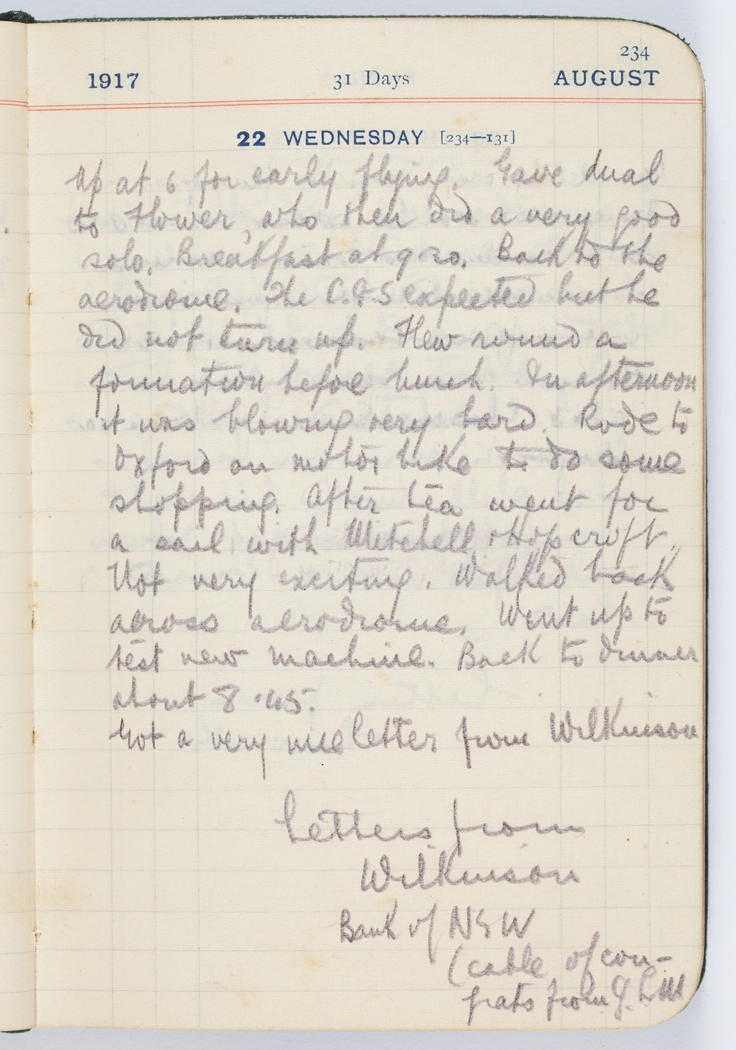 234
1917 31 Days AUGUST
22 WEDNESDAY [234—131]
Up at 6 for early flying. Gave dual
to Flower, who then did a very good
solo. Breakfast at 9 20. Back to the
aerodrome. The C.I.S expected but he
did not turn up. Flew round a
formation before lunch. In afternoon
it was blowing very hard. Rode to
Oxford on motor bike to do some
shopping. After tea went for
a sail with Mitchell & Hopcroft.
Not very exciting. Walked back
across aerodrome. Went up to
test new machine. Back to dinner
about 8.45.
Got a very nice letter from Wilkinson
Letters from
Wilkinson
Bank of NSW
(cable of con-
grats from